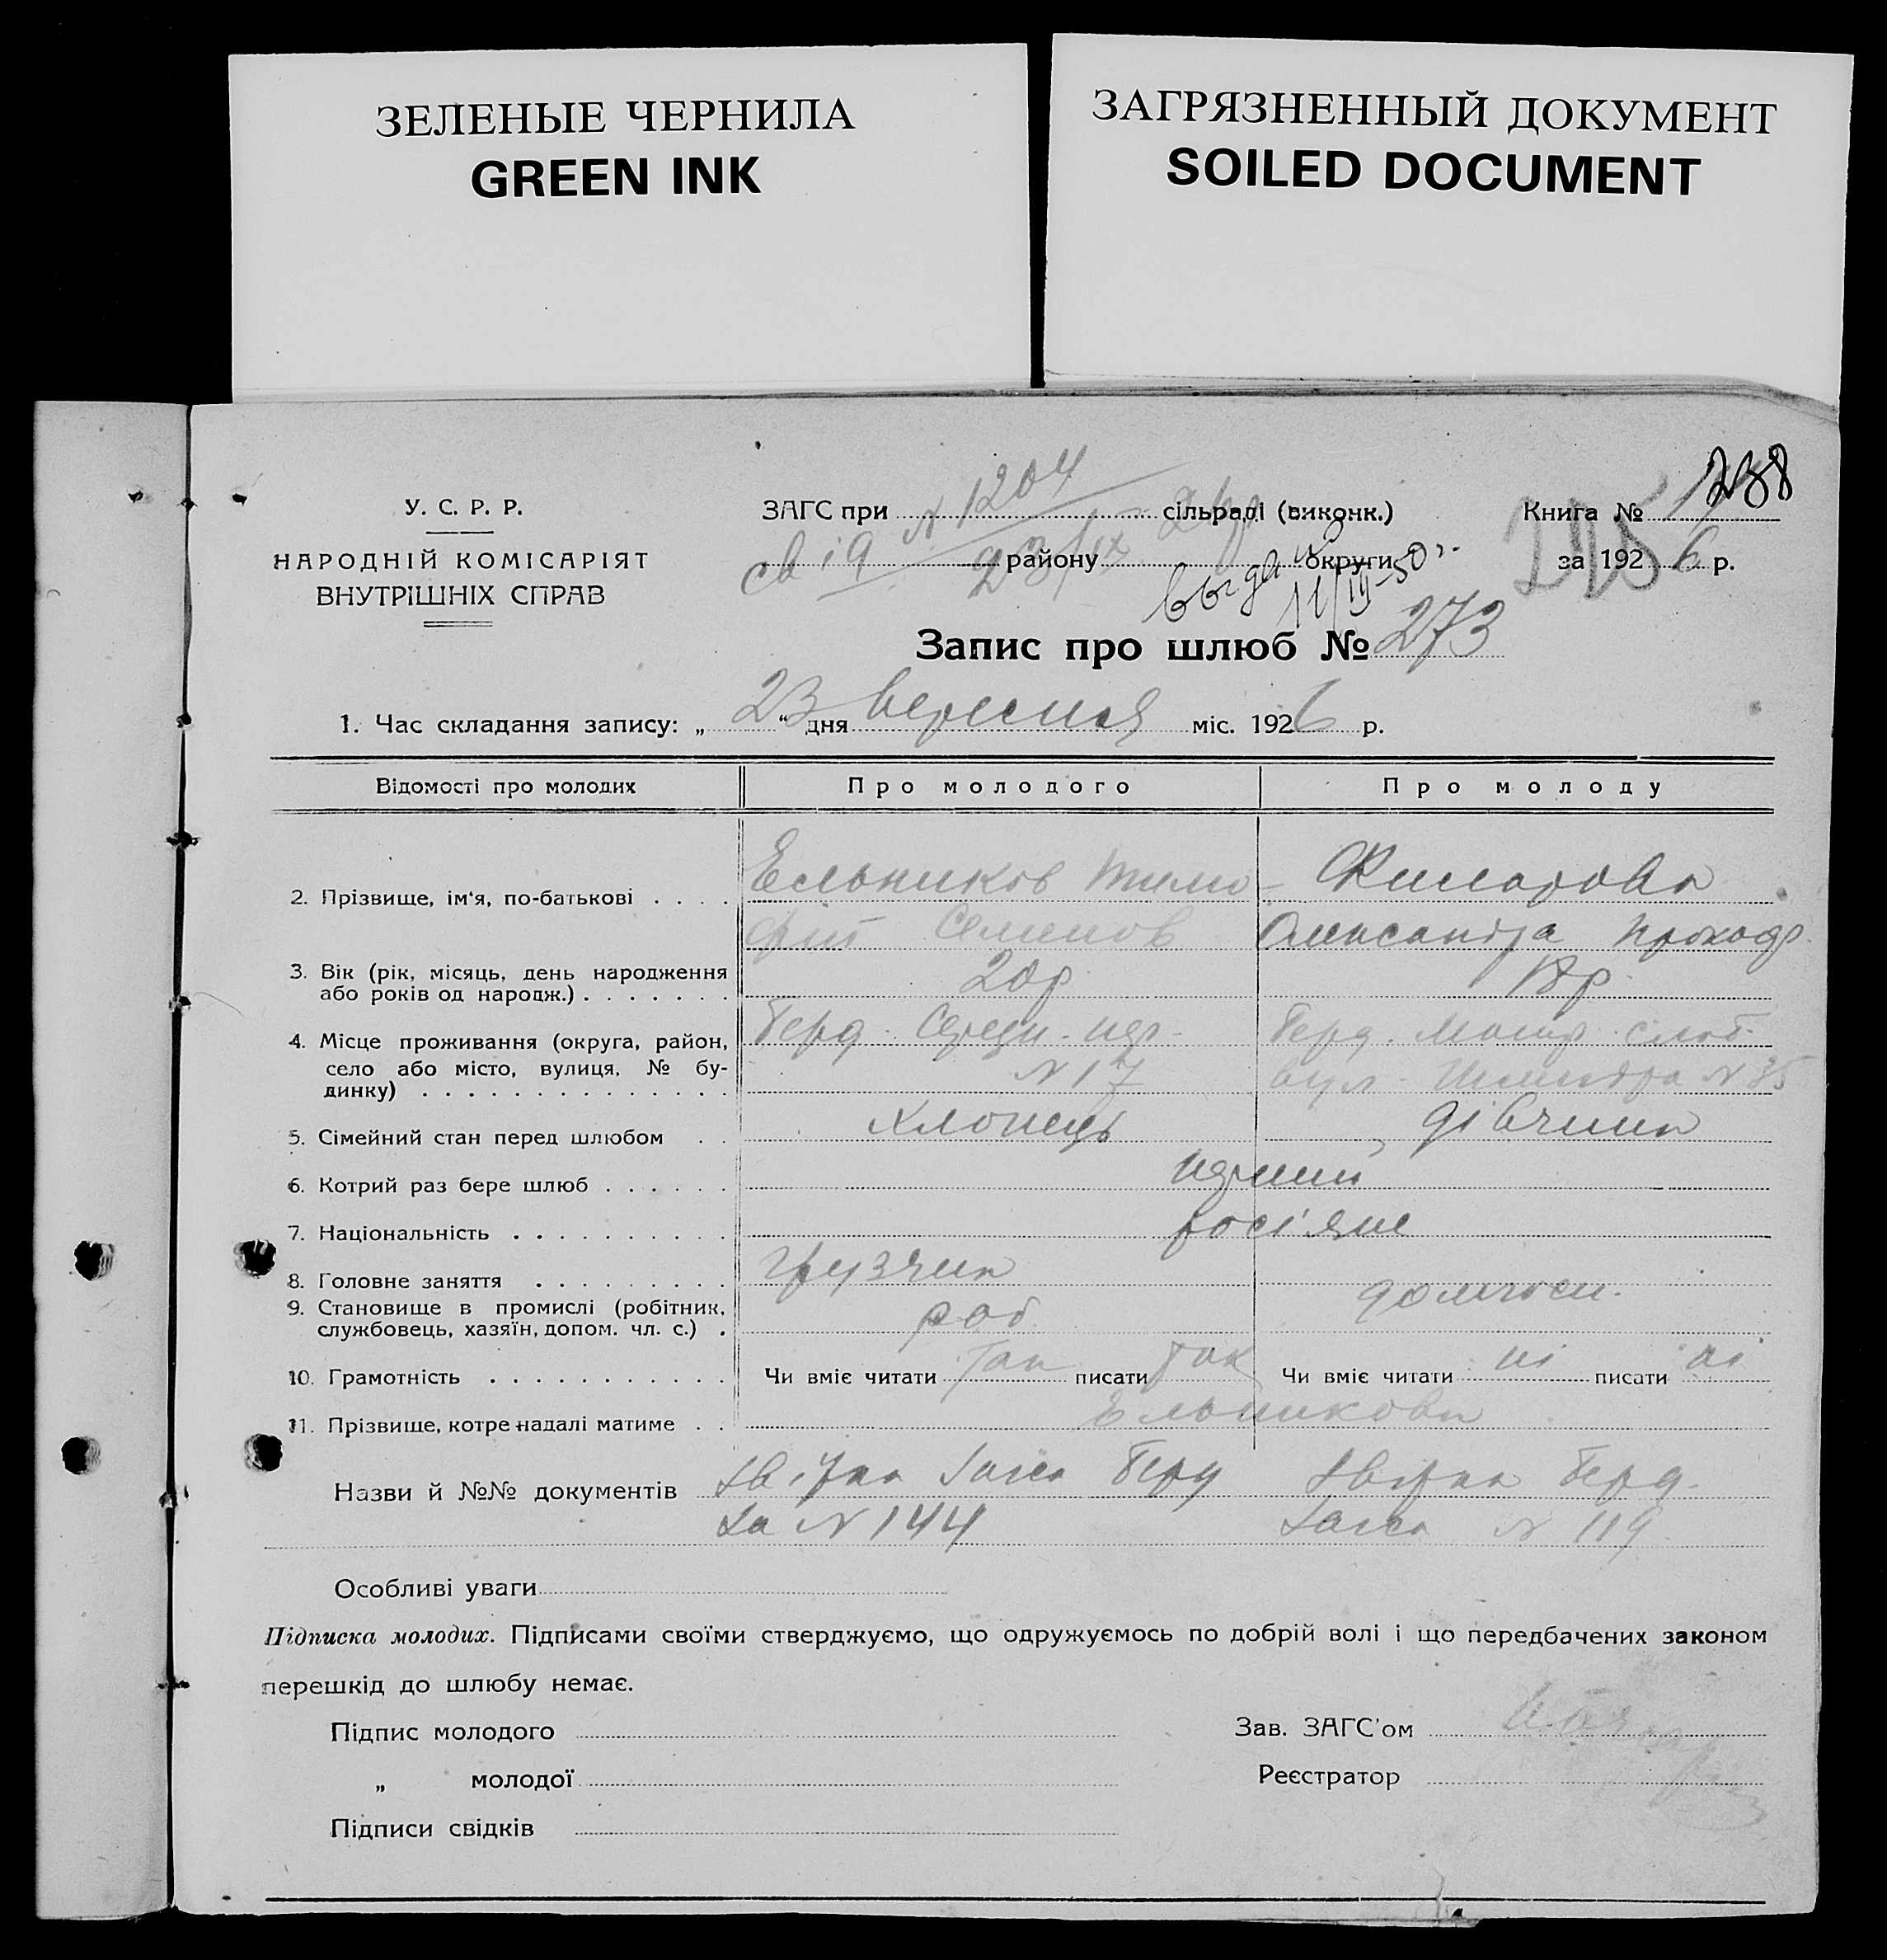 ЗЕЛЕНЫЕ ЧЕРНИЛА
GREEN INK
ЗАГРЯЗНЕННЫЙ ДОКУМЕНТ
SOILED DOCUMENT
У. С. Р. Р.
НАРОДНІЙ КОМІСАРІЯТ
ВНУТРІШНІХ СПРАВ
ЗАГС при N 1204 сільраді (виконк.)
району округи
23/IX 26 р
выдано
11/III-50 г.
Книга № 238
за 1926 р.
Запис про шлюб № 273
1. Час складання запису: „ 23 “ дня вересня міс. 1926 р.
Відомості про молодих Про молодого Про молоду
2. Прізвище, ім'я, по-батькові . . . . Ельников Тимо-
фій Семенов Олександра Прокоф.
3. Вік (рік, місяць, день народження
або років од народж.) . . . . . . . 20 р 18 р.
4. Місце проживання (округа, район,
село або місто, вулиця, № бу-
динку) . . . . . . . . . . . . . . Берд. N 17 Берд. слоб. вул. N 35
5. Сімейний стан перед шлюбом . . хлопець дівчина
6. Котрий раз бере шлюб . . . . . . перший
7. Національність . . . . . . . . . . росіяне
8. Головне заняття . . . . . . . . . грузчик
9. Становище в промислі (робітник,
службовець, хазяїн, допом. чл. с.) . роб домгосп.
10. Грамотність . . . . . . . . . . . Чи вміє читати так писати так Чи вміє читати ні писати ні
11. Прізвище, котре надалі матиме . . Ельникови
Назви й №№ документів Загса Берд Берд.
За N 144 Загса N 119
Особливі уваги
Підписка молодих. Підписами своїми стверджуємо, що одружуємось по добрій волі і що передбачених законом
перешкід до шлюбу немає.
Підпис молодого
„ молодої
Підписи свідків
Зав. ЗАГС'ом
Реєстратор